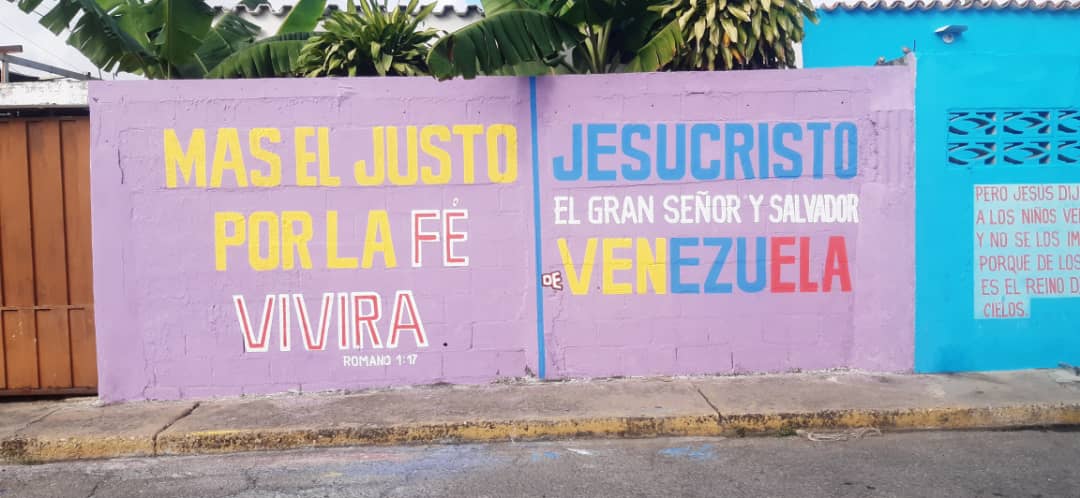 MAS EL JUSTO
POR LA FÉ
VIVIRA
ROMANO 1:17
JESUCRISTO
EL GRAN SEÑOR Y SALVADOR
DE VENEZUELA
PERO JESUS
A LOS NIÑOS
Y NO SE LOS
PORQUE DE LOS
ES EL REINO
CIELOS.